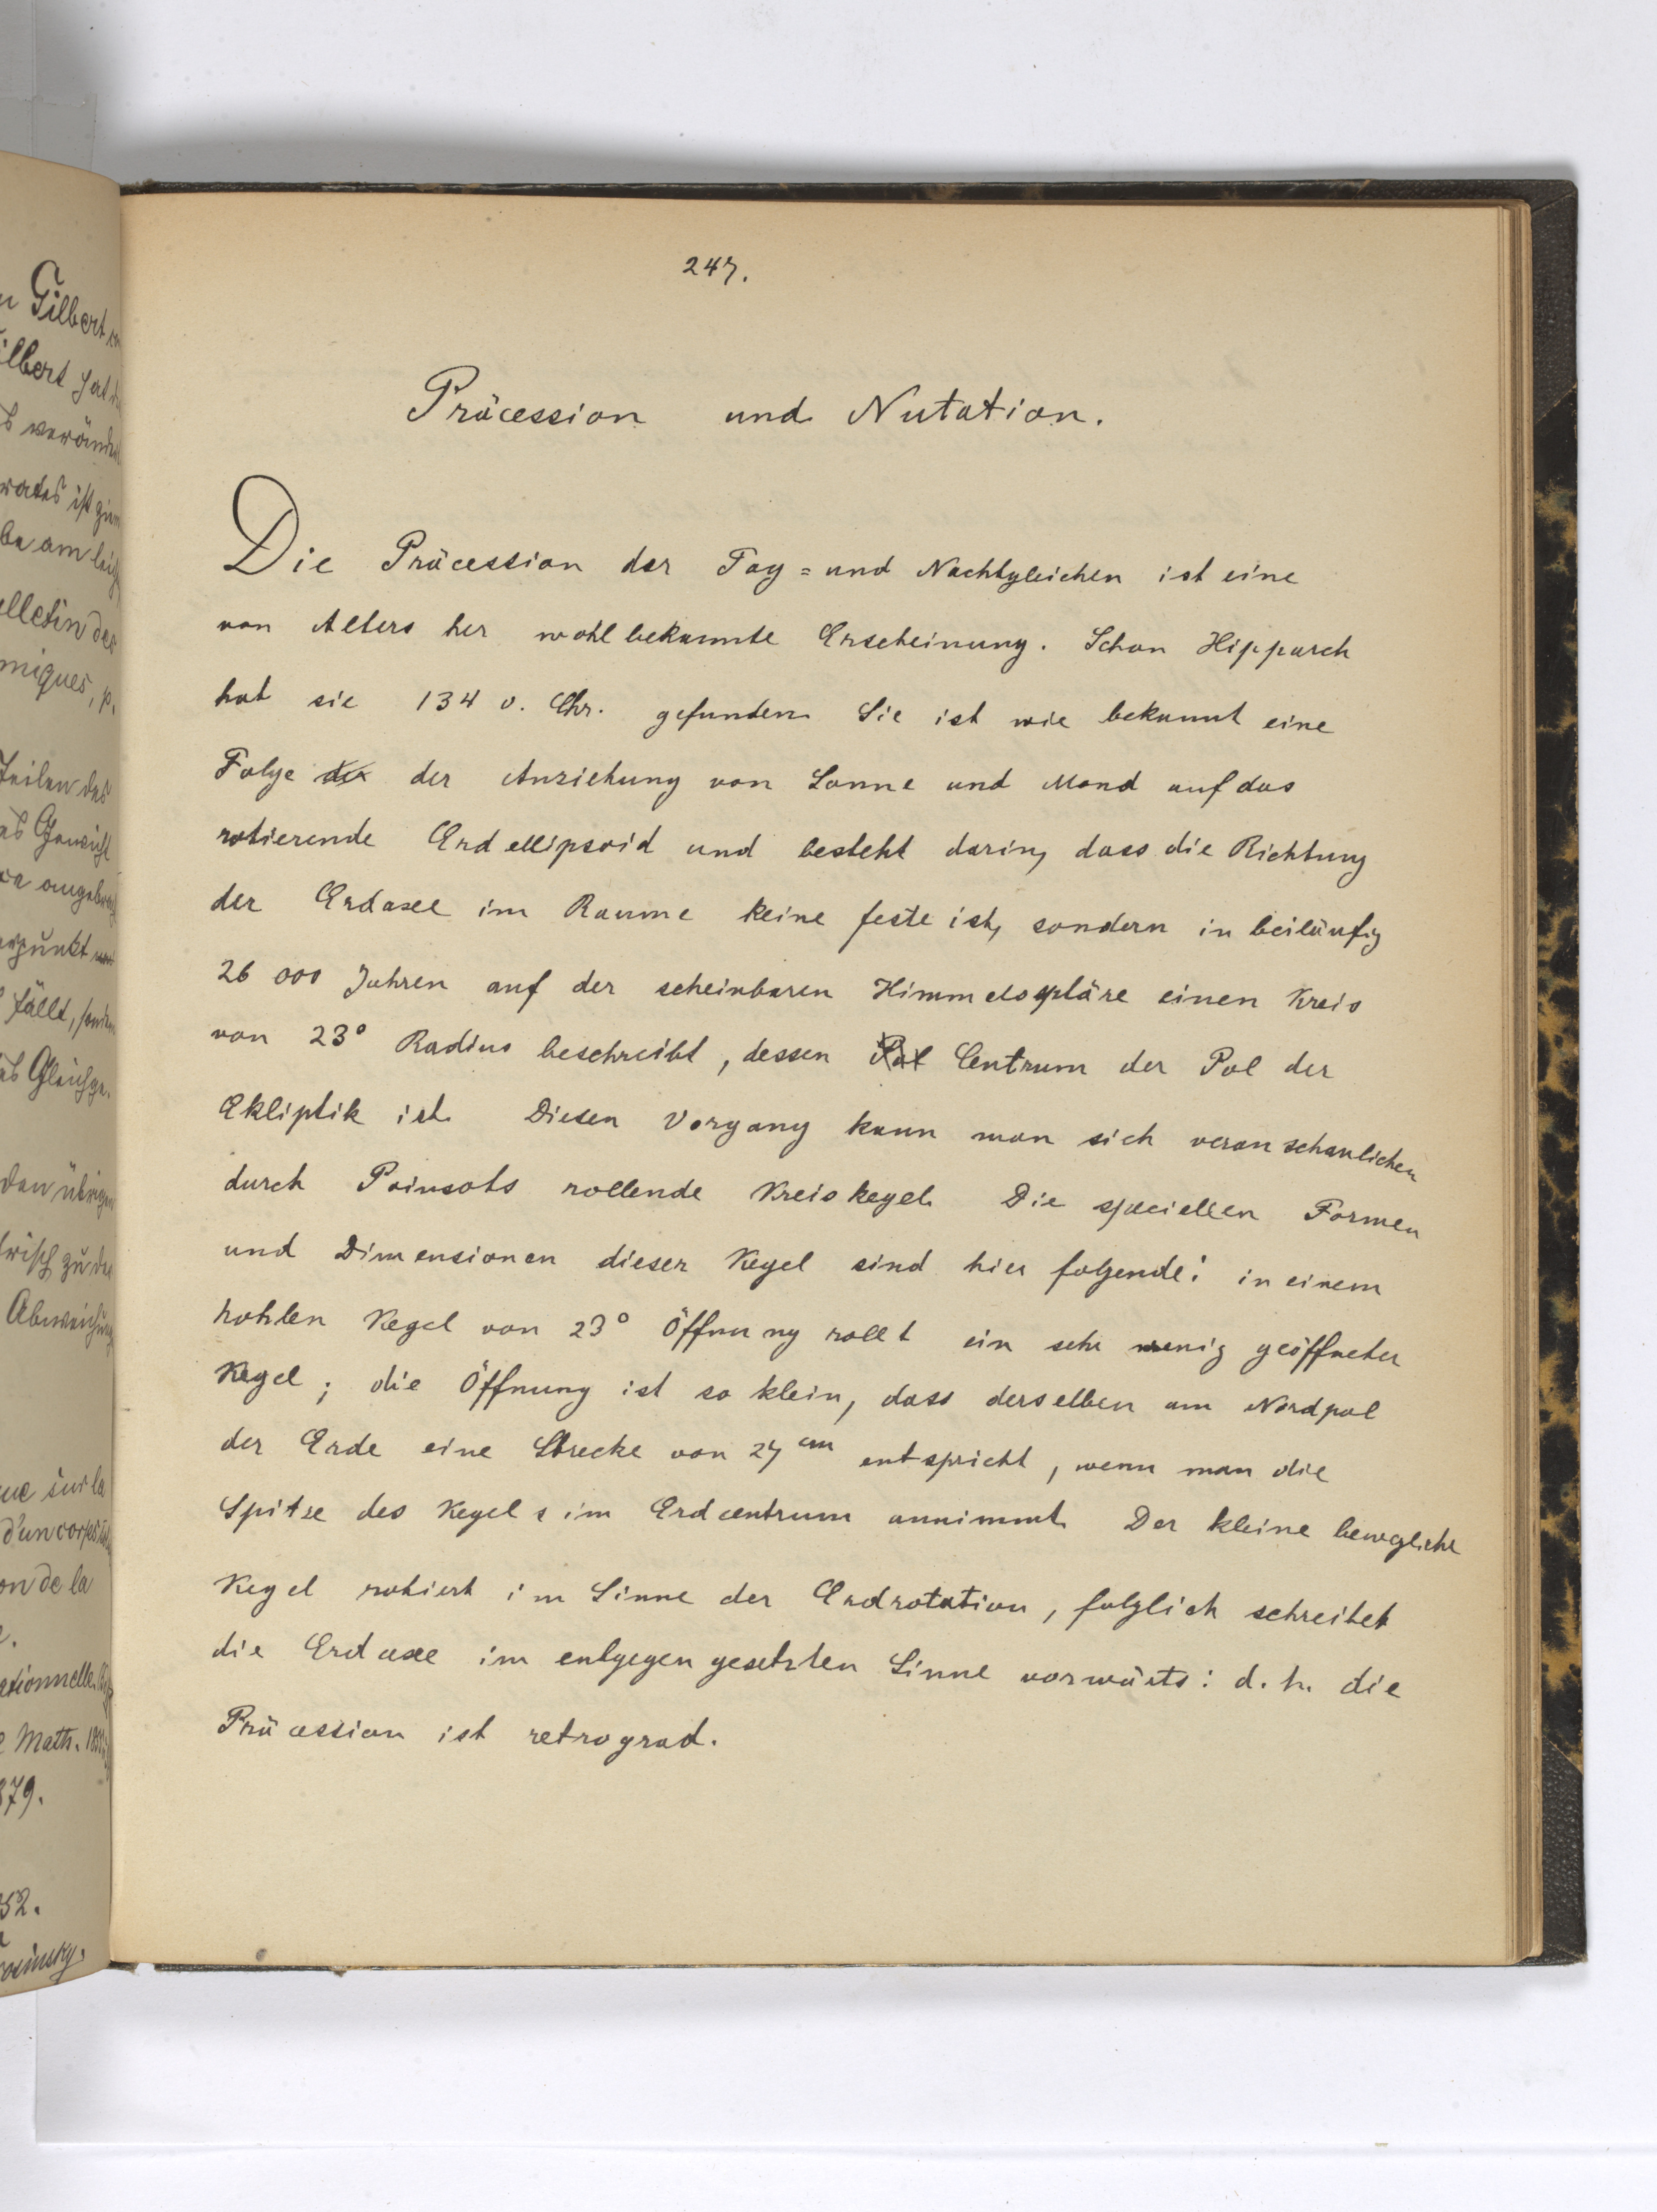 247.
Präcession und Nutation.
Die Präcession der Tag= und Nachtgleichen ist eine
von Alters her wohlbekannte Erscheinung. Schon Hipparch
hat sie 134 v. Chr. gefunden. Sie ist wie bekannt eine
Folge der der Anziehung von Sonne und Mond auf das
rotierende Erdellipsoid und besteht darin, dass die Richtung
der Erdaxe im Raume keine feste ist, sondern in beiläufig
26 000 Jahren auf der scheinbaren Himmelssphäre einen Kreis
von 23° Radius beschreibt, dessen Pol Centrum der Pol der
Ekliptik ist. Diesen Vorgang kann man sich veranschaulichen
durch Poinsots rollende Kreiskegel. Die speciellen Formen
und Dimensionen dieser Kegel sind hier folgende: in einem
hohlen Kegel von 23° Öffnung rollt ein sehr wenig geöffneter
Kegel; die Öffnung ist so klein, dass derselben am Nordpol
der Erde eine Strecke von 27 cm entspricht, wenn man die
Spitze des Kegels im Erdcentrum annimmt. Der kleine bewegliche
Kegel rotiert im Sinne der Erdrotation, folglich schreitet
die Erdaxe im entgegengesetzten Sinne vorwärts: d. h. die
Präcession ist retrograd.